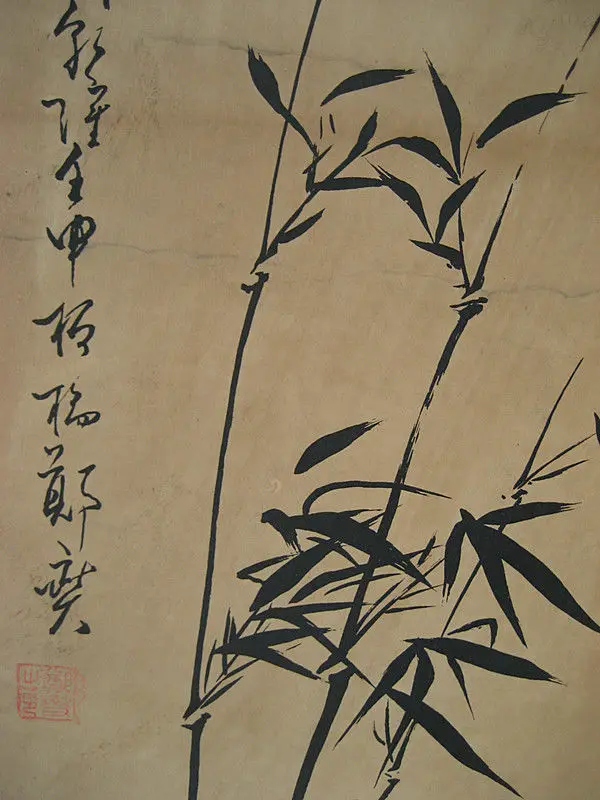 乾隆壬申板橋鄭燮